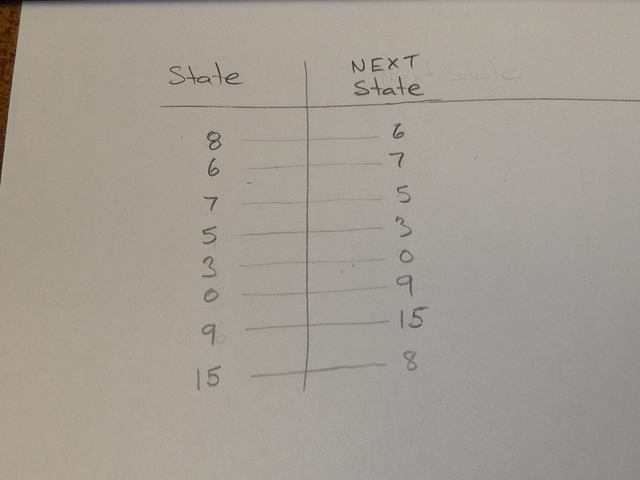 State NEXT State
8 6
6 7
7 5
5 3
3 0
0 9
9 15
15 8